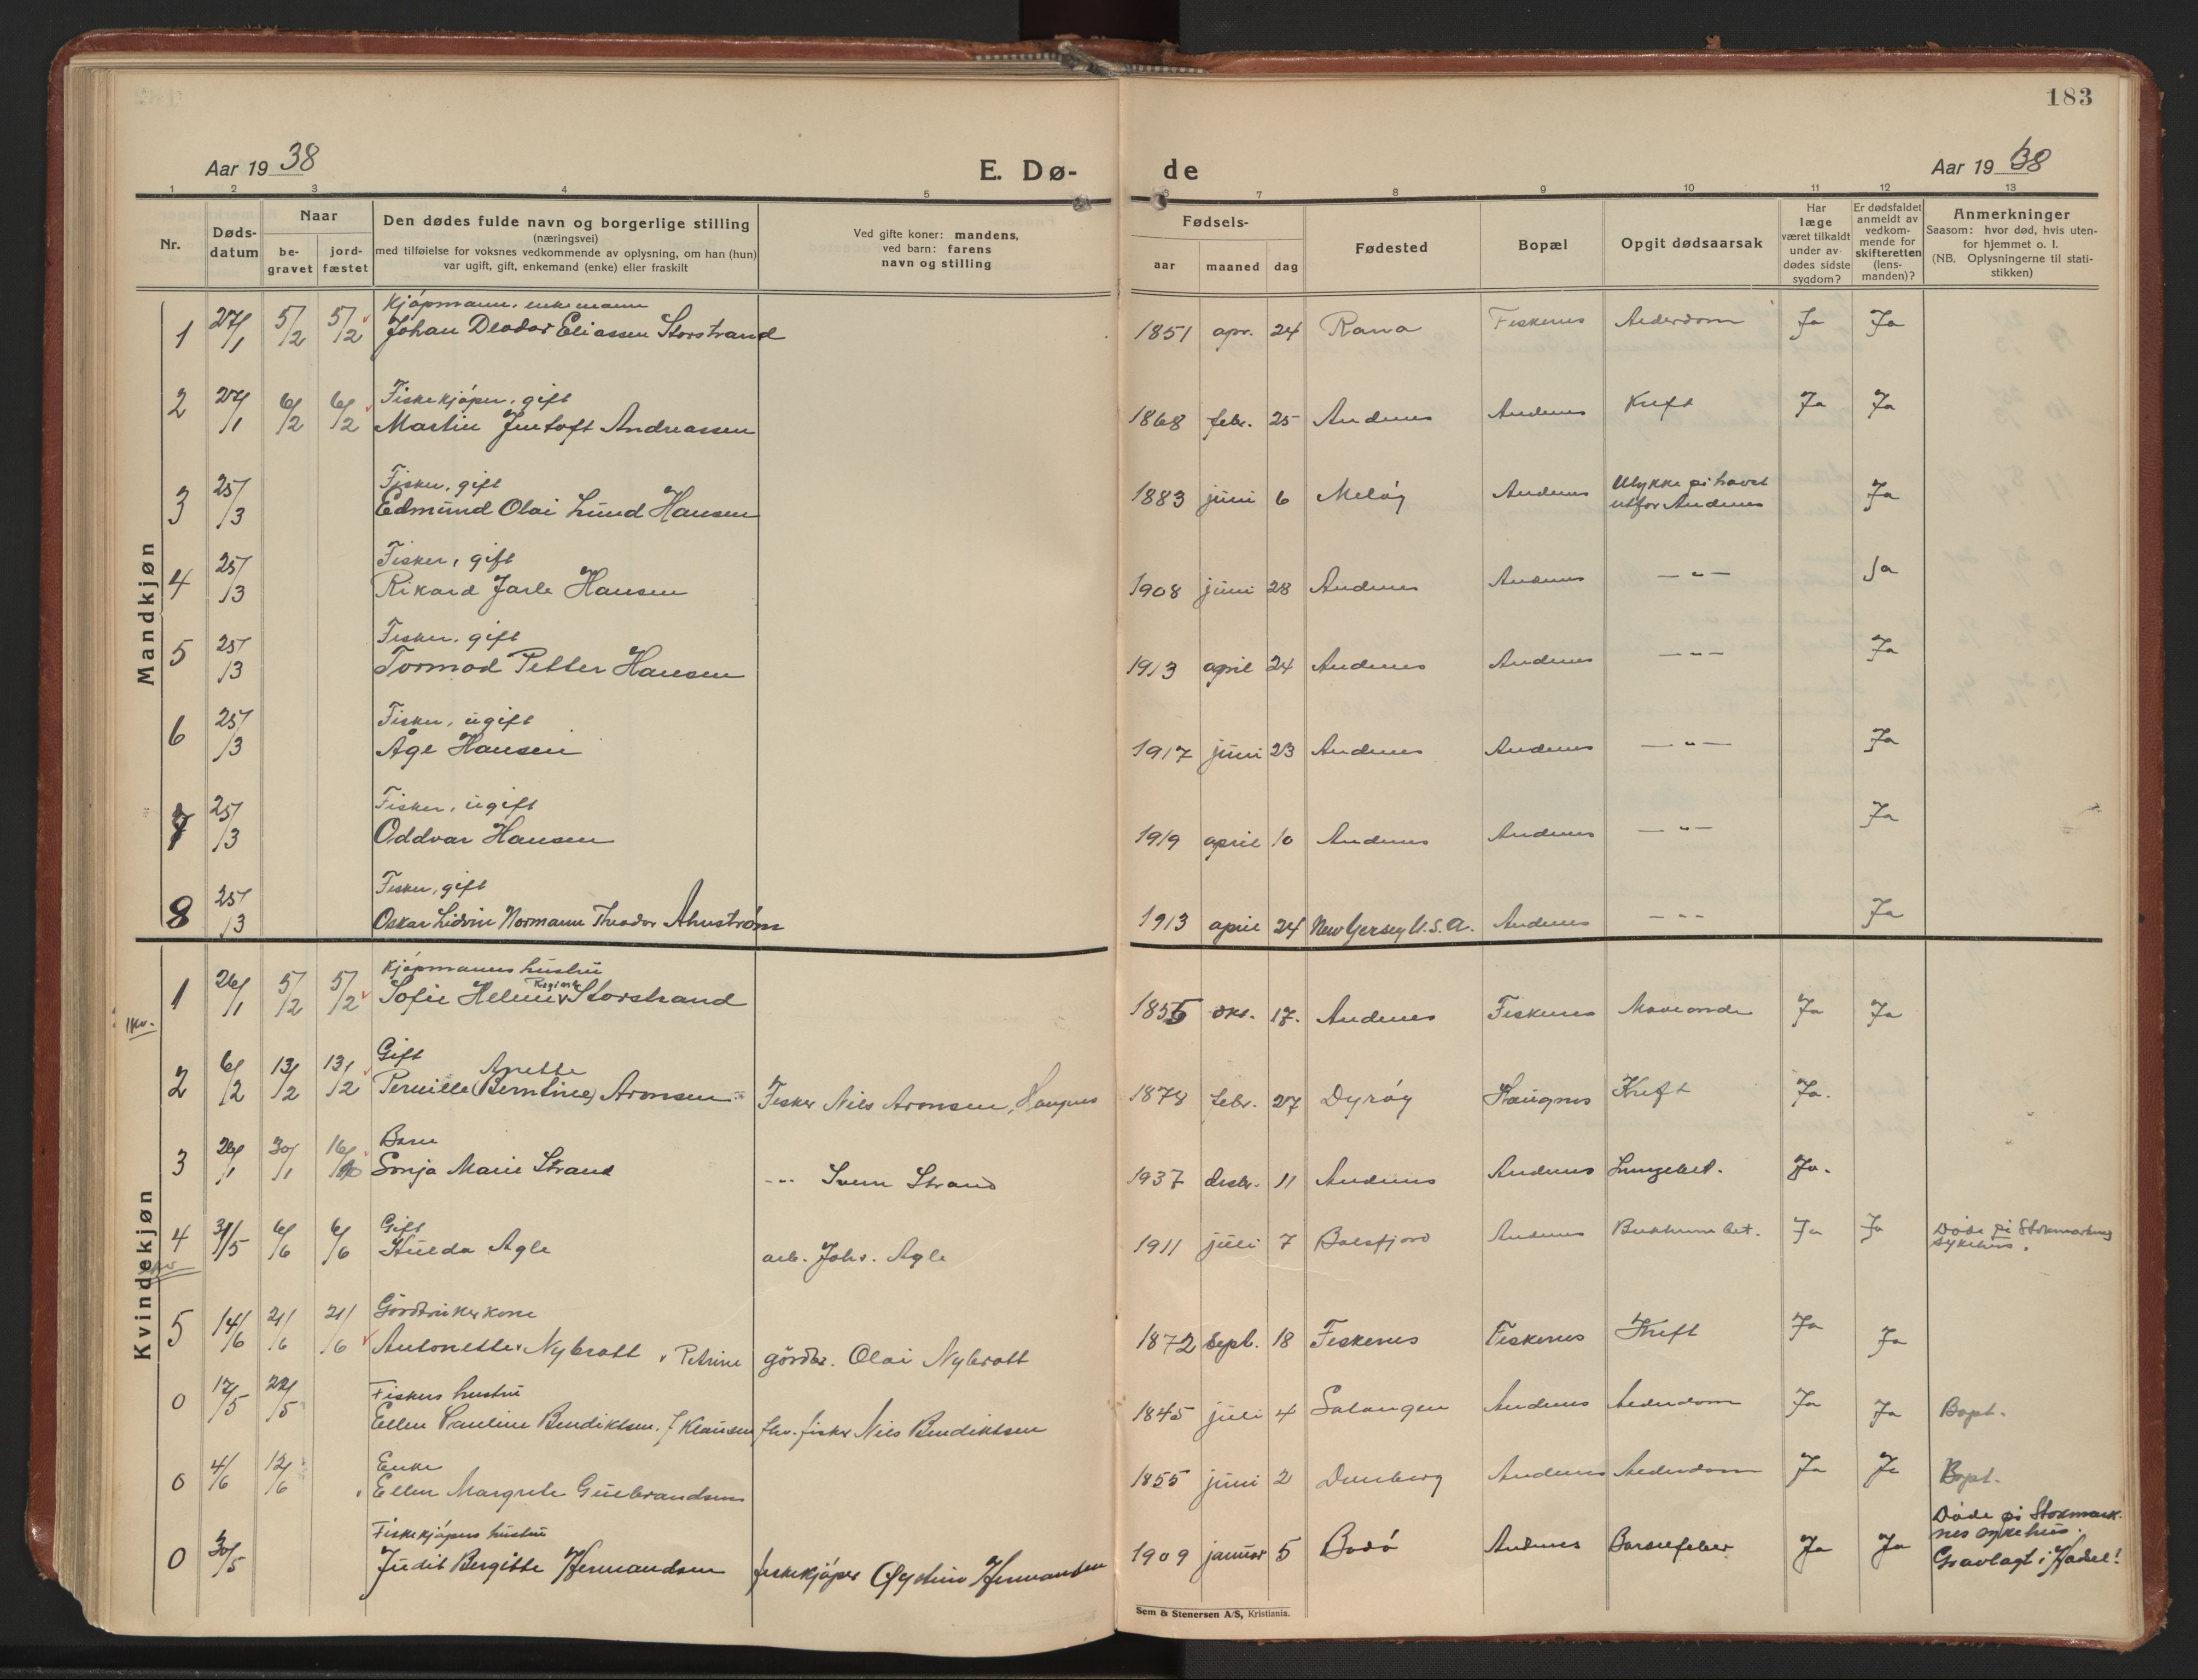 183
Aar 19 38
E. Dø-
de
Aar 19 38
1 2 3 4 5 6 7 8 9 10 11 12 13
Nr.
Døds-
datum
Naar
be-
gravet
jord-
fæstet
Den dødes fulde navn og borgerlige stilling
(næringsvei)
med tilføielse for voksnes vedkommende av oplysning, om han (hun)
var ugift, gift, enkemand (enke) eller fraskilt
Ved gifte koner: mandens,
ved barn: farens
navn og stilling
Fødsels-
aar maaned dag
Fødested
Bopæl
Opgit dødsaarsak
Har
læge
været tilkaldt
under av-
dødes sidste
sygdom?
Er dødsfaldet
anmeldt av
vedkom-
mende for
skifteretten
(lens-
manden)?
Anmerkninger
Saasom: hvor død, hvis uten-
for hjemmet o. l.
(NB. Oplysningerne til stati-
stikken)
Mandkjøn
Kjøpmann, enkemann
1 27/1 5/2 5/2 Johan Deodor Eliassen Storstrand 1851 apr. 24 Rana Fiskenes Alderdom Ja Ja
Fiskekjøper, gift
2 27/1 6/2 6/2 Martin Jentoft Andreassen 1868 febr. 25 Andenes Andenes Kreft Ja Ja
Fisker, gift
3 25/3 Edmund Olai Lund Hansen 1883 juni 6 Meløy Andenes Ulykke på havet
utfor Andenes Ja
Fisker, gift
4 25/3 Rikard Jarle Hansen 1908 juni 28 Andenes Andenes — " — Ja
Fisker, gift
5 25/3 Tormod Petter Hansen 1913 april 24 Andenes Andenes — " — Ja
Fisker, ugift
6 25/3 Åge Hansen 1917 juni 23 Andenes Andenes — " — Ja
Fisker, ugift
7 25/3 Oddvar Hansen 1919 april 10 Andenes Andenes — " — Ja
Fisker, gift
8 25/3 Oskar Lidvin Normann Theodor Ahnstrøm 1913 april 24 New Jersey U.S.A. Andenes — " — Ja
Kvindekjøn
Kjøpmanns hustru
Regine
1 26/1 5/2 5/2 Sofie Heline Storstrand 1855 okt. 17. Andenes Fiskenes Maveonde Ja Ja
Gift
Anette
2 6/2 13/2 13/2 Pernille (Berntine) Aronsen Fisker Nils Aronsen, Haugnes 1878 febr. 27 Dyrøy Haugnes Kreft Ja.
Barn
3 26/1 30/1 16/10 Sonja Marie Strand -"- Svern Strand 1937 desbr. 11 Andenes Andenes Lungebet. Ja.
Gift
4 31/5 6/6 6/6 Hulda Agle arb. Johs. Agle 1911 juli 7 Balsfjord Andenes Bukhinnebet. Ja Ja Døde på Stokmarknes
sykehus.
Gårdbrukerkone
5 14/6 21/6 21/6 Antonette Nybrott Petrine gårdbr. Olai Nybrott 1872 Sept. 18 Fiskenes Fiskenes Kreft Ja Ja
Fiskers hustru
0 17/5 22/5 Ellen Pauline Bendiktsen, f Klausen fhv. fisker Nils Bendiktsen 1845 juli 4 Salangen Andenes Alderdom Ja Ja Bapt.
Enke
0 4/6 12/6 Ellen Margrete Gulbrandsen 1855 juni 2 Dverberg Andenes Alderdom Ja Ja Bapt.
Fiskekjøpers hustru
0 30/5 Judit Bergitte Hermandsen fiskekjøper Øystein Hermandsen 1909 januar 5 Bodø Andenes Barselfeber Ja Ja Døde på Stokmark-
nes sykehus.
Gravlagt i Hadsel!
Sem & Stenersen A/S, Kristiania.